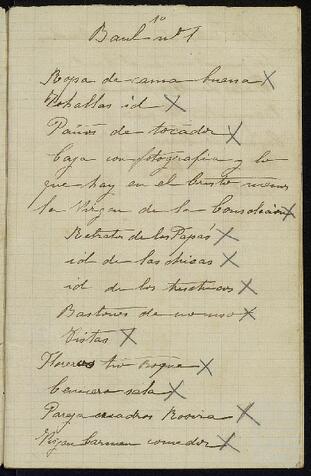 1º
Baul nº 1
Ropa de cama buena X
Tohallas id X
Paños de tocador X
Caja con fotografia y lo
que hay en el Cristo menos
la Virgen de la Consolación X
Retratos de los Papás X
id de las chicas X
id de los X
Bastones de X
Vistas X
Floreros tio Roque X
Cenicero sala X
Pareja cuadros Rovira X
Virgen Carmen comedor X